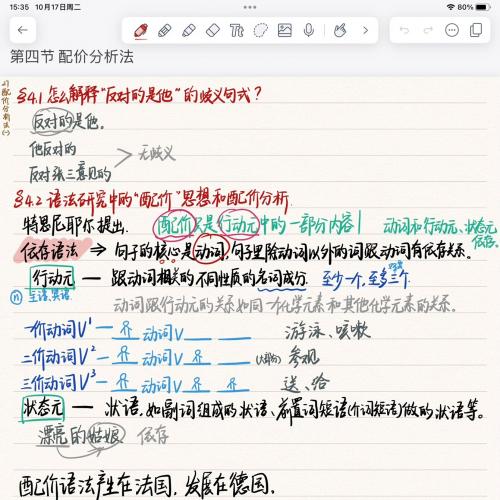 15:35 10月17日周二
80%
第四节 配价分析法
§4.1 怎么解释“反对的是他”的歧义句式？
反对的是他。
他反对的
反对张三意见的
无歧义
§4.2 语法研究中的“配价”思想和配价分析.
特思尼耶尔提出. 配价只是行动元中的一部分内容
动词和行动元、状态元依存.
依存语法 ⇒ 句子的核心是动词，句子里除动词以外的词跟动词有依存关系。
行动元 — 跟动词相关的不同性质的名词成分. 至少一个，至多三个.
主语、宾语
动词跟行动元的关系如同一个化学元素和其他化学元素的关系。
一价动词V¹ — 动词V 游泳、咳嗽
二价动词V² — 动词V 参观
三价动词V³ — 动词V 送、给
状态元 — 状语. 如副词组成的状语、前置词短语(介词短语)做的状语等。
漂亮的姑娘 依存
配价语法产生在法国，发展在德国.